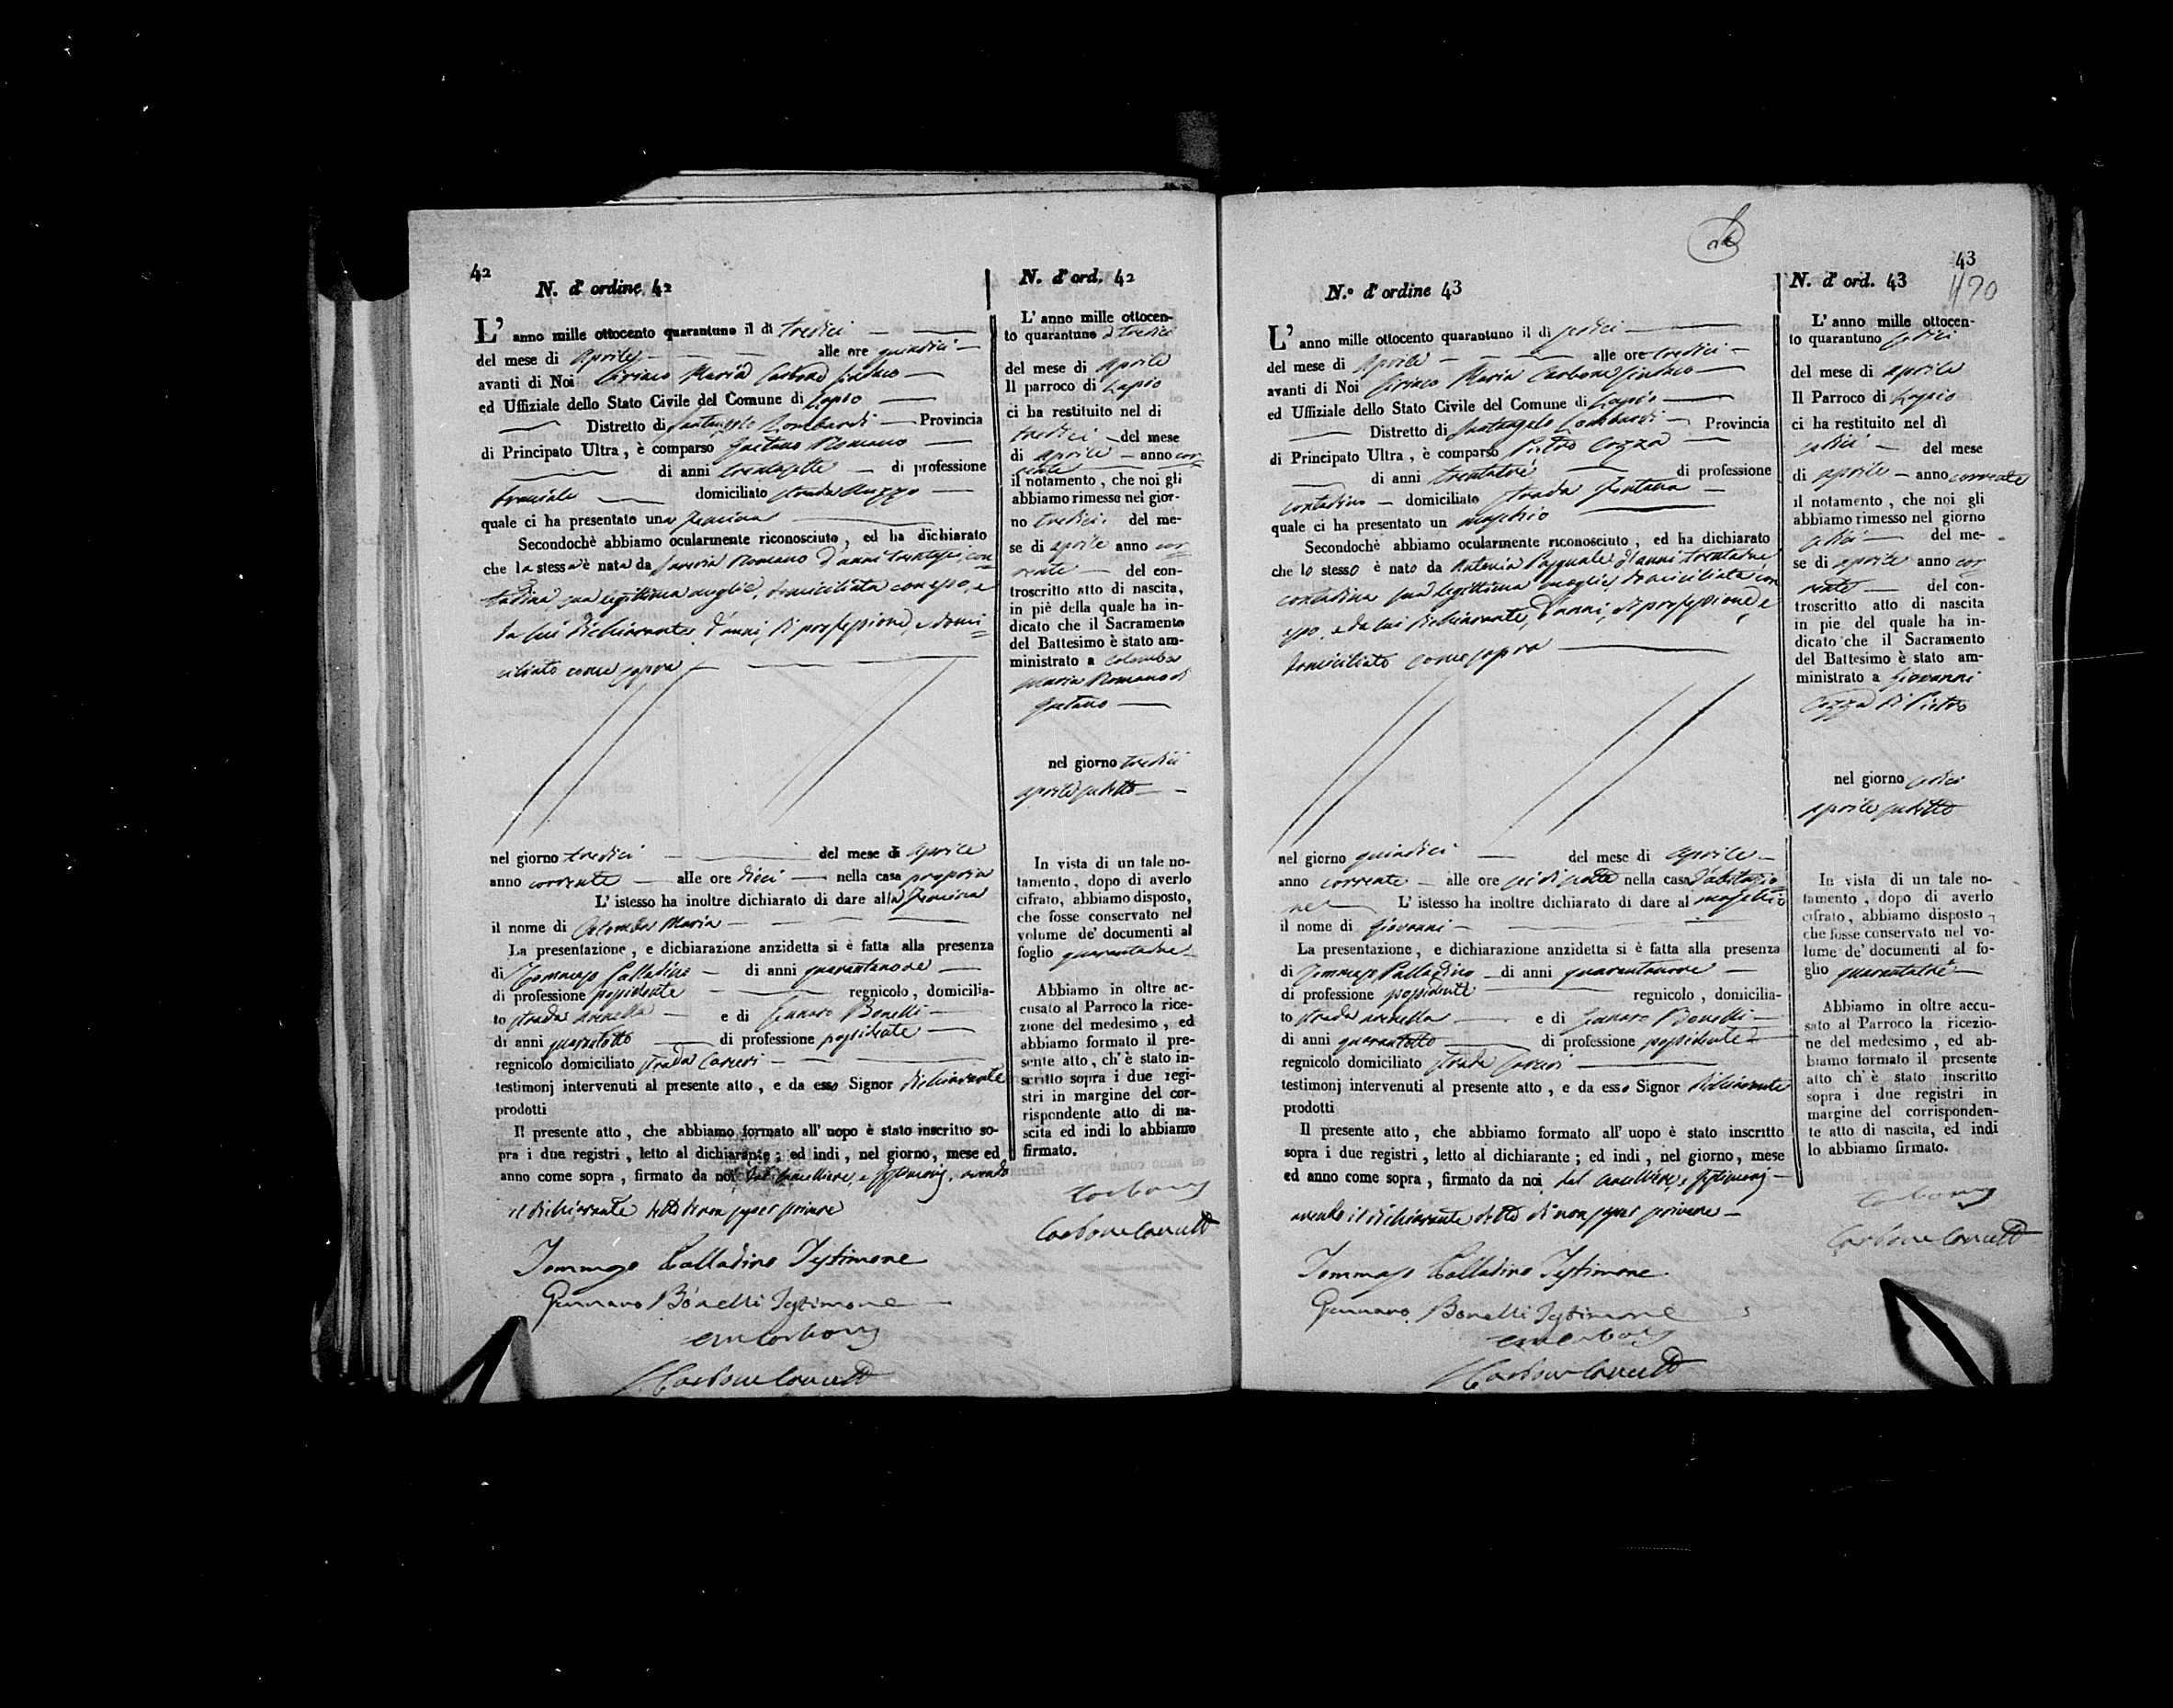 42
N. d' ordine 42
L' anno mille ottocento quarantuno il di tredici
del mese di Aprile alle ore quindici
avanti di Noi Ciriaco Maria Carbone Sindaco
ed Uffiziale dello Stato Civile del Comune di Lapio
Distretto di Santangelo Lombardi Provincia
di Principato Ultra, è comparso Gaetano Romano
di anni trentasette di professione
bracciale domiciliato strada
quale ci ha presentato una femina
Secondochè abbiamo ocularmente riconosciuto, ed ha dichiarato
che la stessa è nata da Romano d'anni trentasei, con=
tadina sua legittima moglie, domiciliata con esso, e
da lui dichiarante d'anni, di professione, e domi=
ciliato come sopra
nel giorno tredici del mese di Aprile
anno corrente alle ore dieci nella casa propria
L' istesso ha inoltre dichiarato di dare alla femina
il nome di Colomba Maria
La presentazione, e dichiarazione anzidetta si è fatta alla presenza
di Tommaso Palladino di anni quarantanove
di professione possidente regnicolo, domicilia-
to strada Arenella e di Gennaro Bonelli
di anni quarantotto di professione possidente
regnicolo domiciliato strada Carceri
testimonj intervenuti al presente atto, e da esso Signor dichiarante
prodotti
Il presente atto, che abbiamo formato all' uopo è stato inscritto so-
pra i due registri, letto al dichiarante; ed indi, nel giorno, mese ed
anno come sopra, firmato da noi dal cancelliere, e testimonj, avendo
il dichiarante detto di non saper scrivere
Tommaso Palladino Testimone
Gennaro Bonelli Testimone
CMCarbone
Carbone Cancell.
N. d' ord. 42
L' anno mille ottocen-
to quarantuno a tredici
del mese di Aprile
Il parroco di Lapio
ci ha restituito nel di
tredici del mese
di Aprile anno cor=
rente
il notamento, che noi gli
abbiamo rimesso nel gior-
no tredici del me-
se di Aprile anno cor=
rente del con-
troscritto atto di nascita,
in piè della quale ha in-
dicato che il Sacramento
del Battesimo è stato am-
ministrato a Colomba
Maria Romano di
Gaetano
nel giorno tredici
Aprile sudetto
In vista di un tale no-
tamento, dopo di averlo
cifrato, abbiamo disposto,
che fosse conservato nel
volume de' documenti al
foglio quarantadue
Abbiamo in oltre ac-
cusato al Parroco la rice-
zione del medesimo, ed
abbiamo formato il pre-
sente atto, ch' è stato in-
scritto sopra i due regi-
stri in margine del cor-
rispondente atto di na-
scita ed indi lo abbiamo
firmato.
Carbone
Carbone Cancell.
43
490
N.° d' ordine 43
L' anno mille ottocento quarantuno il di sedici
del mese di Aprile alle ore tredici
avanti di Noi Ciriaco Maria Carbone Sindaco
ed Uffiziale dello Stato Civile del Comune di Lapio
Distretto di Santangelo Lombardi Provincia
di Principato Ultra, è comparso Pietro Cozza
di anni trentatrè di professione
contadino domiciliato strada Fontana
quale ci ha presentato un maschio
Secondochè abbiamo ocularmente riconosciuto, ed ha dichiarato
che lo stesso è nato da Antonia Pasquale d'anni trentadue
contadina sua legittima moglie, domiciliata con
esso, e da lui dichiarante, d'anni, di professione, e
domiciliato come sopra
nel giorno quindici del mese di Aprile
anno corrente alle ore sei di notte nella casa d'abitazio
ne L' istesso ha inoltre dichiarato di dare al maschio
il nome di Giovanni
La presentazione, e dichiarazione anzidetta si è fatta alla presenza
di Tommaso Palladino di anni quarantanove
di professione possidente regnicolo, domicilia-
to strada Arenella e di Gennaro Bonelli
di anni quarantotto di professione possidente
regnicolo domiciliato strada Carceri
testimonj intervenuti al presente atto, e da esso Signor dichiarante
prodotti
Il presente atto, che abbiamo formato all' uopo è stato inscritto
sopra i due registri, letto al dichiarante; ed indi, nel giorno, mese
ed anno come sopra, firmato da noi dal cancelliere, e testimonj
avendo il dichiarante detto di non saper scrivere
Tommaso Palladino Testimone
Gennaro Bonelli Testimone
CMCarbone
Carbone Cancell.
N. d' ord. 43
L' anno mille ottocen-
to quarantuno sedici
del mese di Aprile
Il Parroco di Lapio
ci ha restituito nel dì
sedici del mese
di Aprile anno corrente
il notamento, che noi gli
abbiamo rimesso nel giorno
sedici del me-
se di Aprile anno cor
rente del con-
troscritto atto di nascita
in pie del quale ha in-
dicato che il Sacramento
del Battesimo è stato am-
ministrato a Giovanni
Cozza di Pietro
nel giorno sedici
Aprile sudetto
In vista di un tale no-
tamento, dopo di averlo
cifrato, abbiamo disposto,
che fosse conservato nel vo-
lume de' documenti al fo-
glio quarantatrè
Abbiamo in oltre accu-
sato al Parroco la ricezio-
ne del medesimo, ed ab-
biamo formato il presente
atto ch' è stato inscritto
sopra i due registri in
margine del corrisponden-
te atto di nascita, ed indi
lo abbiamo firmato.
Carbone
Carbone Cancell.